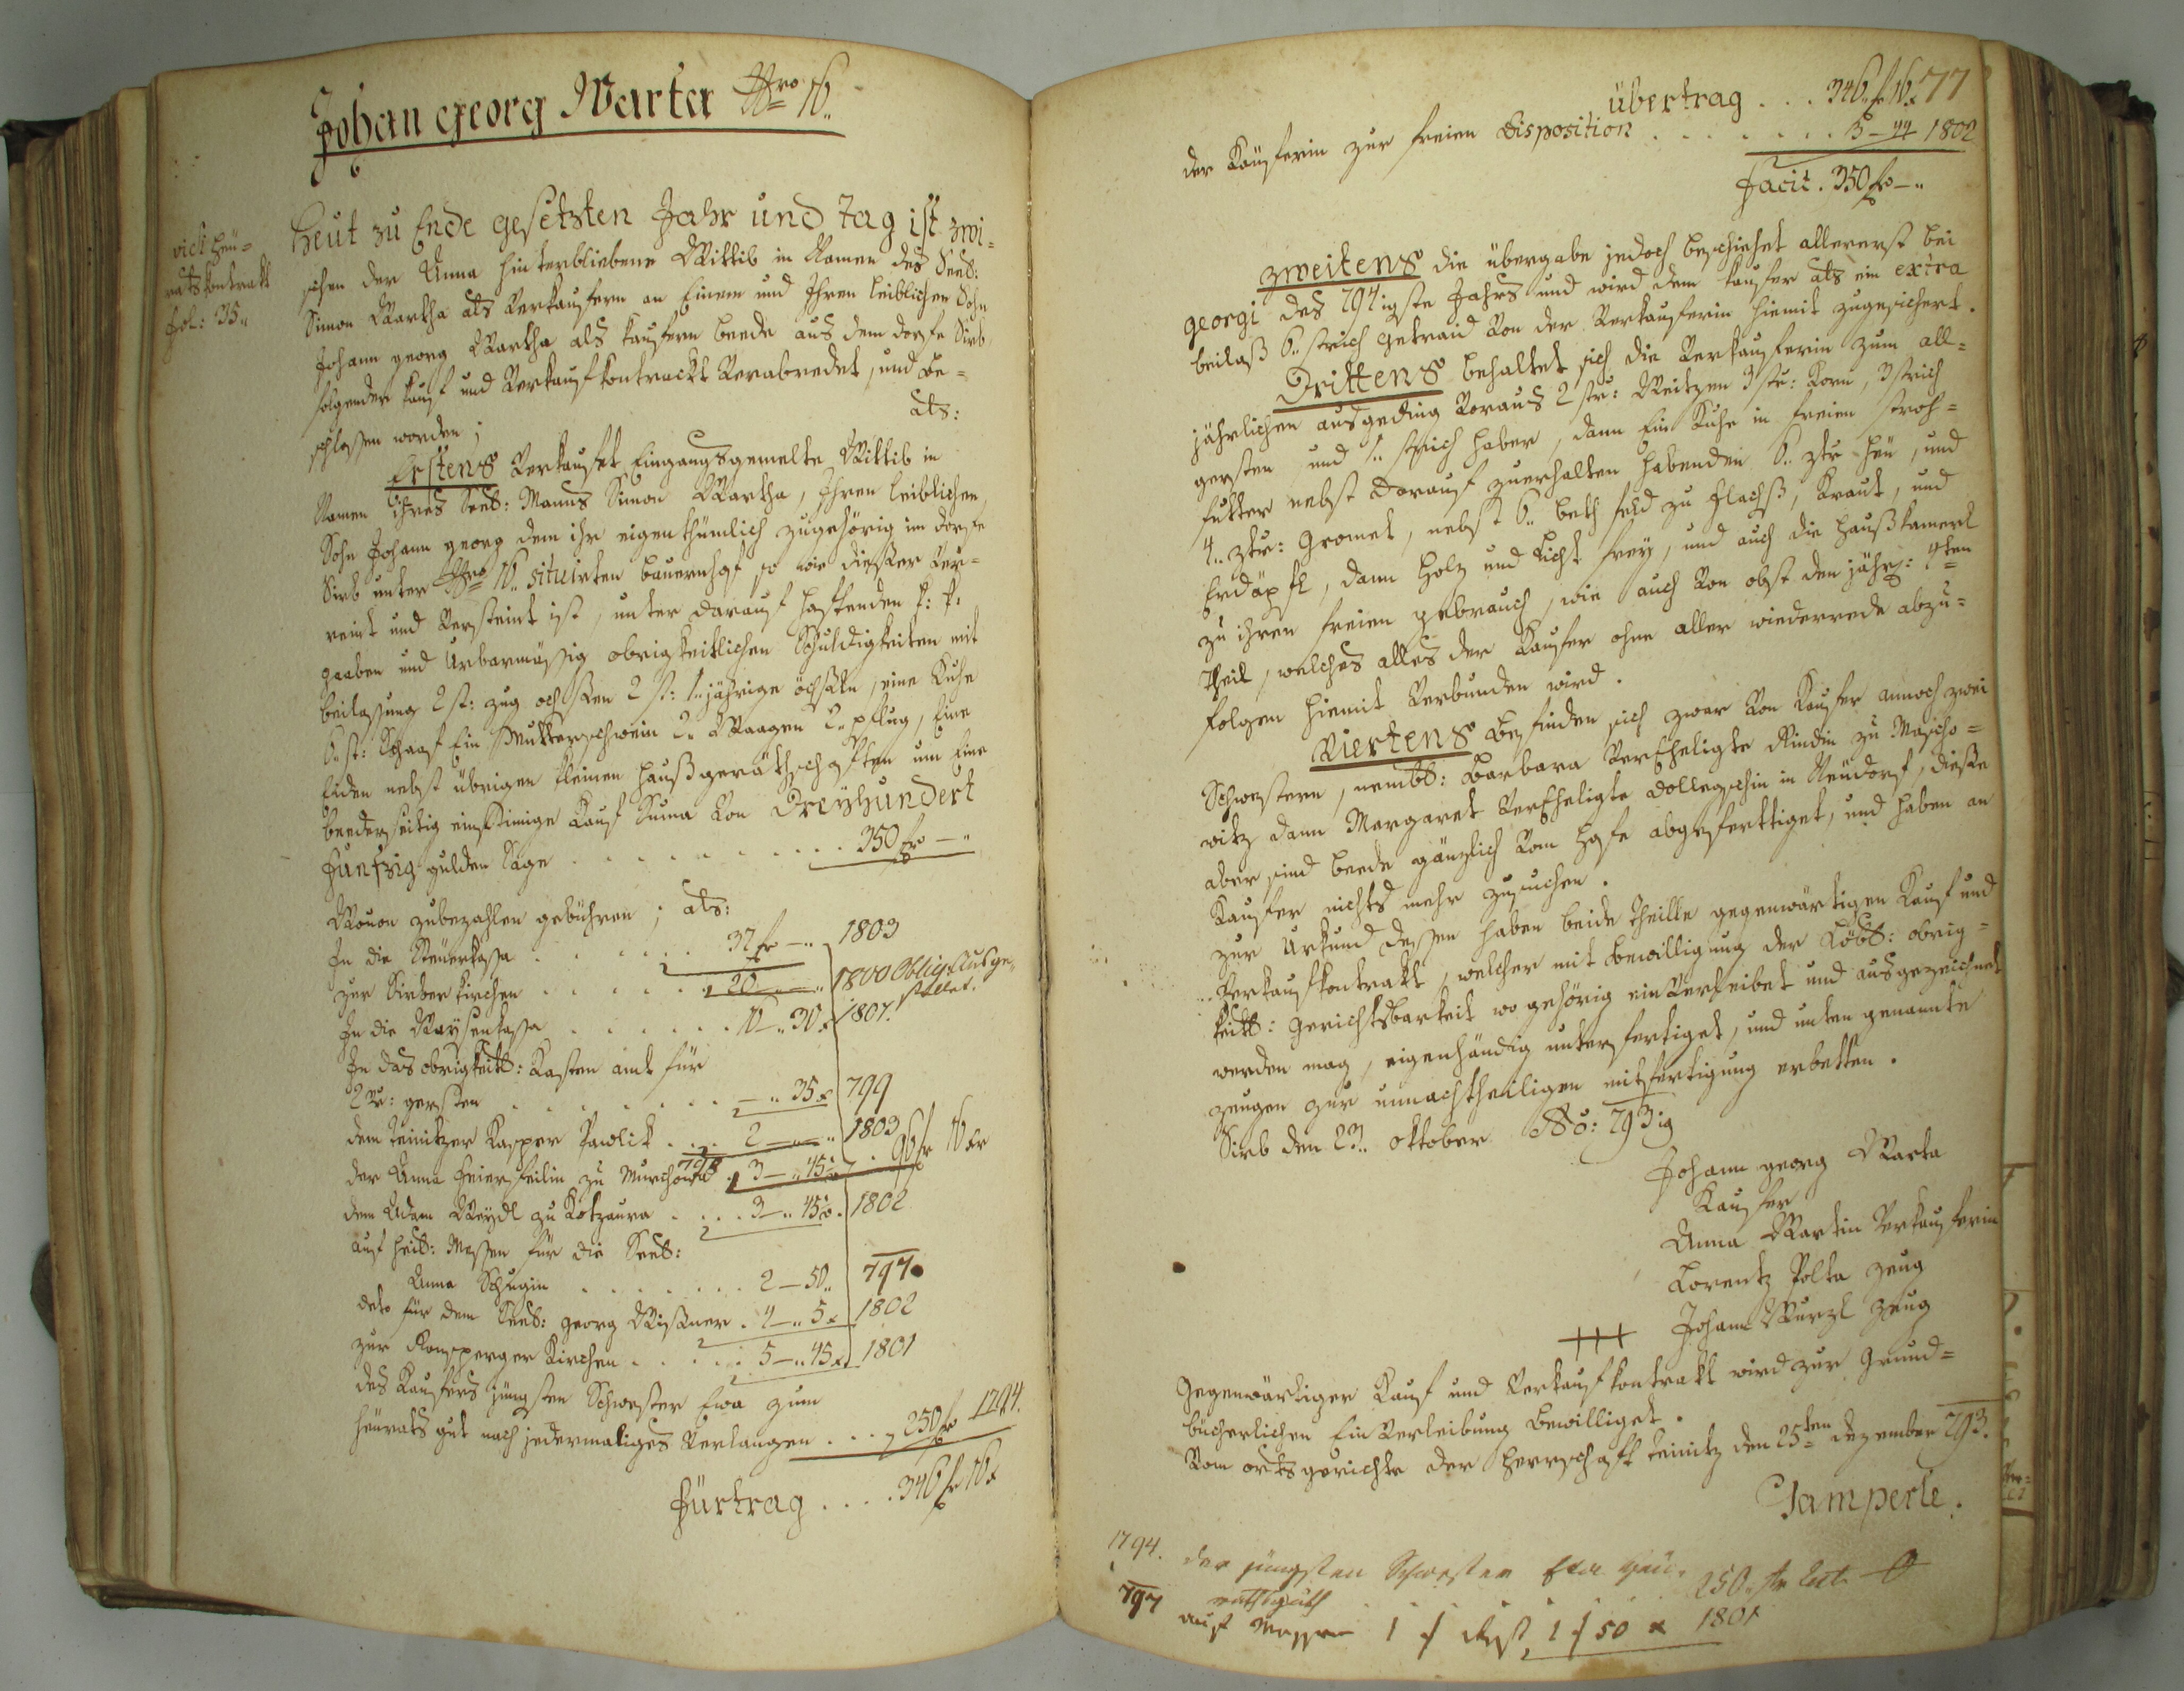 Johan georg Warta Nro 16.
vide Heu-
rats kontrakt
fol: 35.
Heut zu Ende gesetzten Jahr und Tag ist zwi-
schen der Anna hinterbliebene Wittib in Namen des Seel:
Simon Wartha als Verkaufern an Einem und Ihren leiblichen Sohn
Johann georg Wartha als kaufern beede aus dem dorfe Sirb
folgender kauf und Verkaufkontrackt Verabredet, und be-
schlossen worden; als:
Erstens Verkaufet Eingangsgemelte Wittib in
Namen ihres Seel: Manns Simon Wartha, Ihren leiblichen
Sohn Johann georg dem ihr eigenthümlich zugehörig im dorfe
Sirb unter Nro 16. situirten bauernhof so wie dieser Ver-
reint und Versteint ist, unter darauf haftenden k: k:
gaaben und Urbarmässig obrigkeitlichen Schuldigkeiten mit
beilassung 2 st: zug ochsen 2 st: 1. jährige öchseln, eine Kuhe
6. st: Schaaf Ein Mutterschwein 2. Waagen 2. pflug, Eine
Eiden nebst übrigen kleinen haußgeräthschaften um Eine
beederseitig einstimige Kauf Suma Von Dreyhundert
Funfzig gulden Sage . . . . . . . . . 350 fr —"
Wovon zubezahlen gebühren; als:
In die Steuerkassa . . . . . . 37 fr —" 1803
zur Sirber kirchen . . . . . . 20 —" 1800 Oblig: Ausge-
stellet.
In die Waysenkassa . . . . . . 16 —" 30 x 1801.
In das obrigkeitl: Kasten amt für
2 str: gersten . . . . . . . . —" 35 x 799
dem teinitzer Kasper Pawlik . . . 2 —" 1803
der Anna Feierfeilin zu Murchowa 798 3 —" 45 x . 96 fr 16 xr
dem Adam Weydl zu Kotzaura . . . . 3 —" 45 x. 1802
auf heil: Messen für die Seel:
Anna Schugin . . . . . . . 2 — 50" 797.
deto für dem Seel: georg Wissner . 4 —" 5 x 1802
zur Ronsperger Kirchen . . . . . . 5 —" 45 x. 1801
des Kaufers jüngsten Schwester Ewa zum
heurats gut nach jedermaliges Verlangen . . . 250 fr 1794.
Fürtrag . . . . 346 fr 16 x
übertrag . . . 346 fr 16 x 77
der Kauferin zur freien Disposition . . . . . . . 3 — 44 1802
Facit . 350 fr —"
Zweitens die übergabe jedoch beschiehet allererst bei
georgi des 794igste Jahrs und wird dem kaufer als ein extra
beilaß 6. strich getraid Von der Verkauferin hiemit zugesichert.
Drittens behaltet sich die Verkauferin zum all-
jährlichen ausgeding Voraus 2 str: Weitzen 3 str: Korn, 3 strich
gersten und 1. strich haber, dann Ein Kuhe in freien stroh-
futter nebst darauf zuerhalten habenden 6. ztr heu, und
4. ztr: Gromet, nebst 6. beth feld zu flachß, Kraut, und
Erdäpfl, dann Holz und Licht frey, und auch die haußkamerl
zu ihren freien gebrauch, wie auch Von obst den jährl: 4ten
theil, welches alles der Kaufer ohne aller wiederrede abzu-
folgen hiemit Verbunden wird.
Viertens befinden sich zwar Von Kaufer annoch zwei
Schwestern, nembl: Barbara VerEheligte Rindin zu Mascho-
witz dann Margaret VerEheligte dollegschin in Neudorf, diesse
aber sind beede gänzlich Vom Hofe abgeferttiget, und haben an
Kaufer nichts mehr zusuchen.
Zur Urkund dessen haben beide Theille gegenwärtigen Kauf und
Verkaufkontrakt, welcher mit bewilligung der Löbl: obrig-
keitl: Gerichtsbarkeit wo gehörig einVerleibet und ausgezeichnet
werden mag, eigenhändig unterfertiget, und unten genannte
zeugen zur unnachtheiligen mitfertigung erbetten.
Sirb den 23. oktober Ao: 793ig
Johann georg Warta
Kaufer
Anna Wartin Verkauferin
Lorentz Polta zeug
+++ Johann Wurzl zeug
Gegenwärtiger Kauf und Verkaufkontrakt wird zur Grund-
bücherlichen EinVerleibung bewilliget.
Vom ortsgerichte der Herrschaft teinitz den 25ten dezember 793.
Jamperle.
1794. der jüngsten Schwester Ewa heu-
rathsguth 250 fr
797 auf Messen 1 f 1 f 50 x 1801